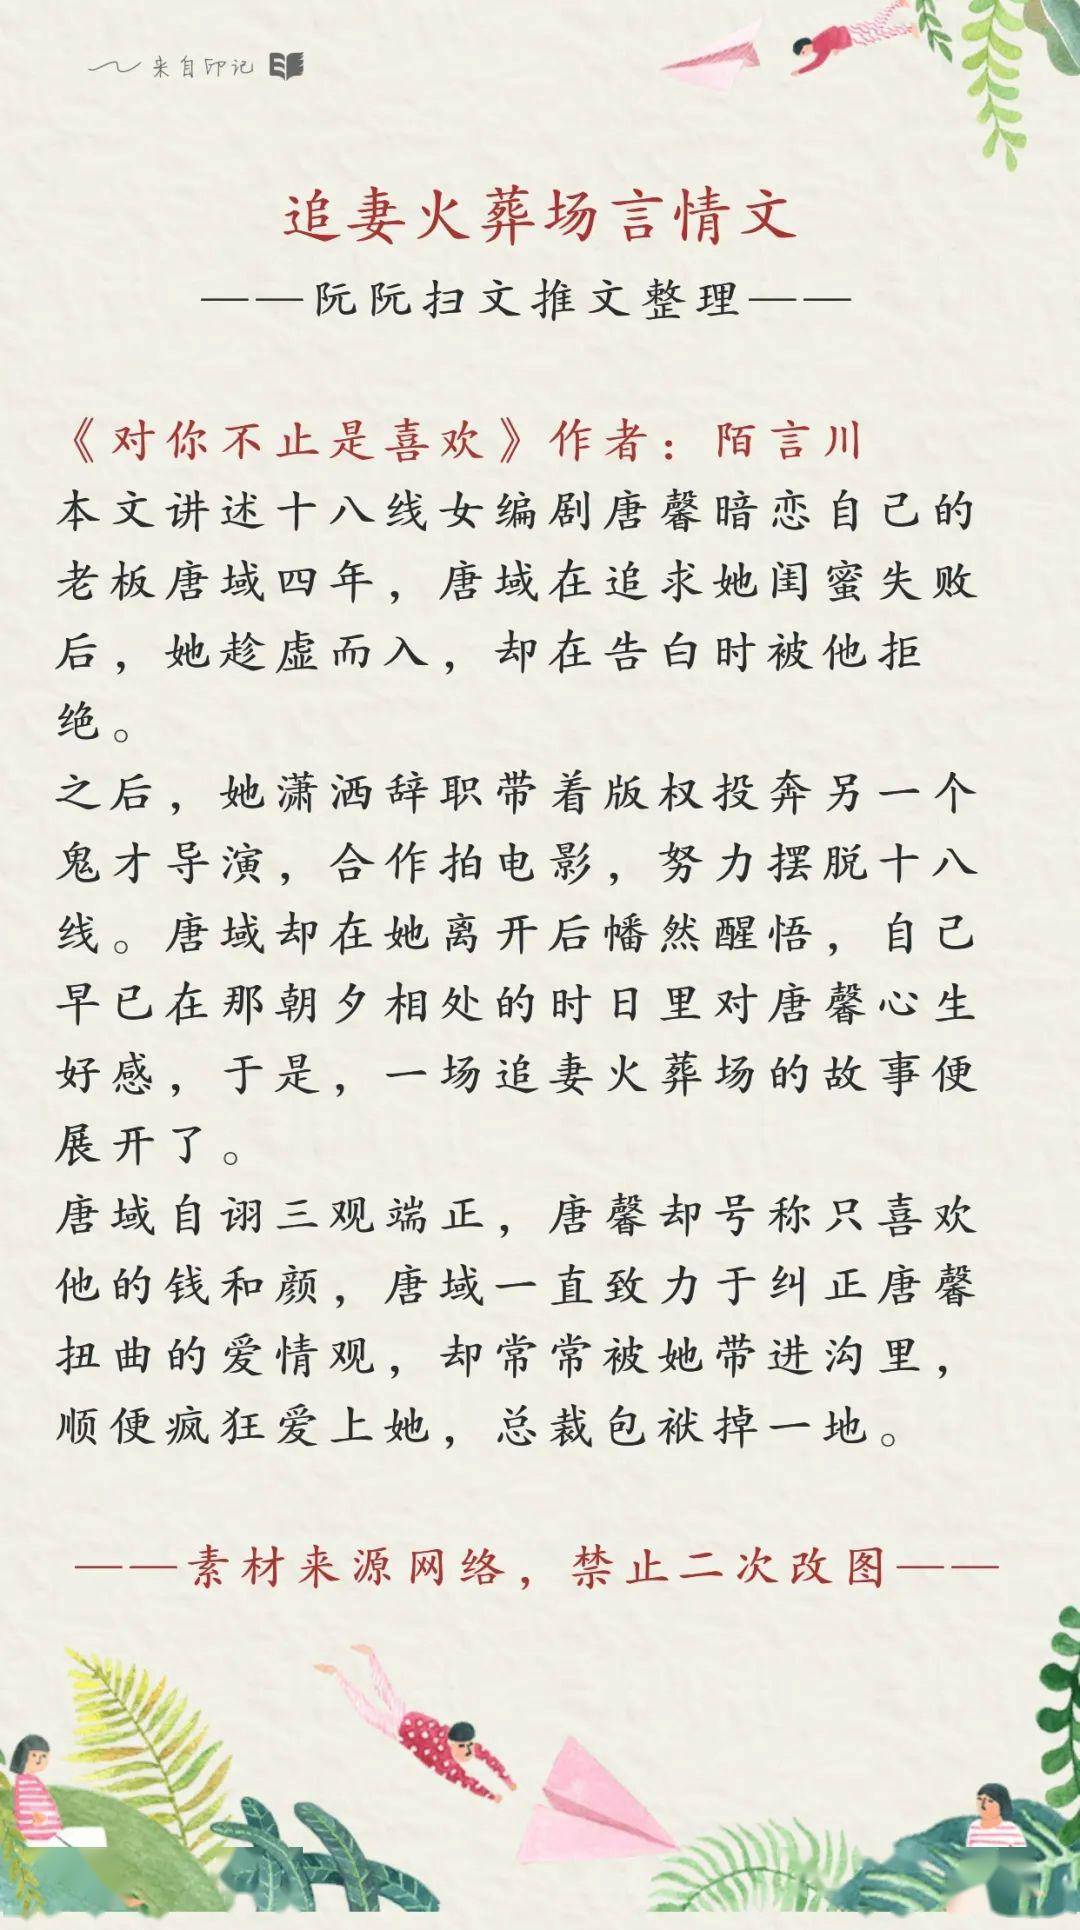 来自印记
追妻火葬场言情文
——阮阮扫文推文整理——
《对你不止是喜欢》作者：陌言川
本文讲述十八线女编剧唐馨暗恋自己的
老板唐域四年，唐域在追求她闺蜜失败
后，她趁虚而入，却在告白时被他拒
绝。
之后，她潇洒辞职带着版权投奔另一个
鬼才导演，合作拍电影，努力摆脱十八
线。唐域却在她离开后幡然醒悟，自己
早已在那朝夕相处的时日里对唐馨心生
好感，于是，一场追妻火葬场的故事便
展开了。
唐域自诩三观端正，唐馨却号称只喜欢
他的钱和颜，唐域一直致力于纠正唐馨
扭曲的爱情观，却常常被她带进沟里，
顺便疯狂爱上她，总裁包袱掉一地。
——素材来源网络，禁止二次改图——